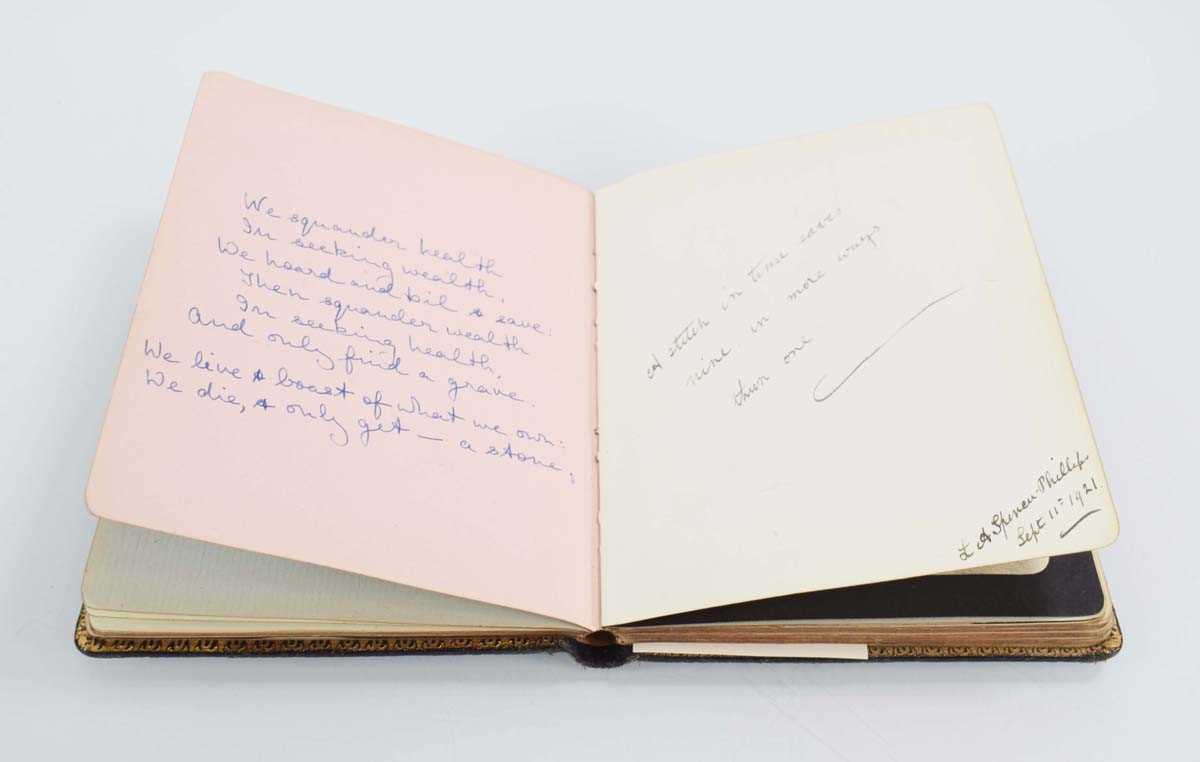 We squander health
In seeking wealth,
We hoard and toil & save:
Then squander wealth
In seeking health,
And only find a grave.
We live & boast of what we own:
We die, & only get — a stone,
A stitch in time saves
nine in more ways
than one
A Spencer-Phillips
Sept 11th 1921